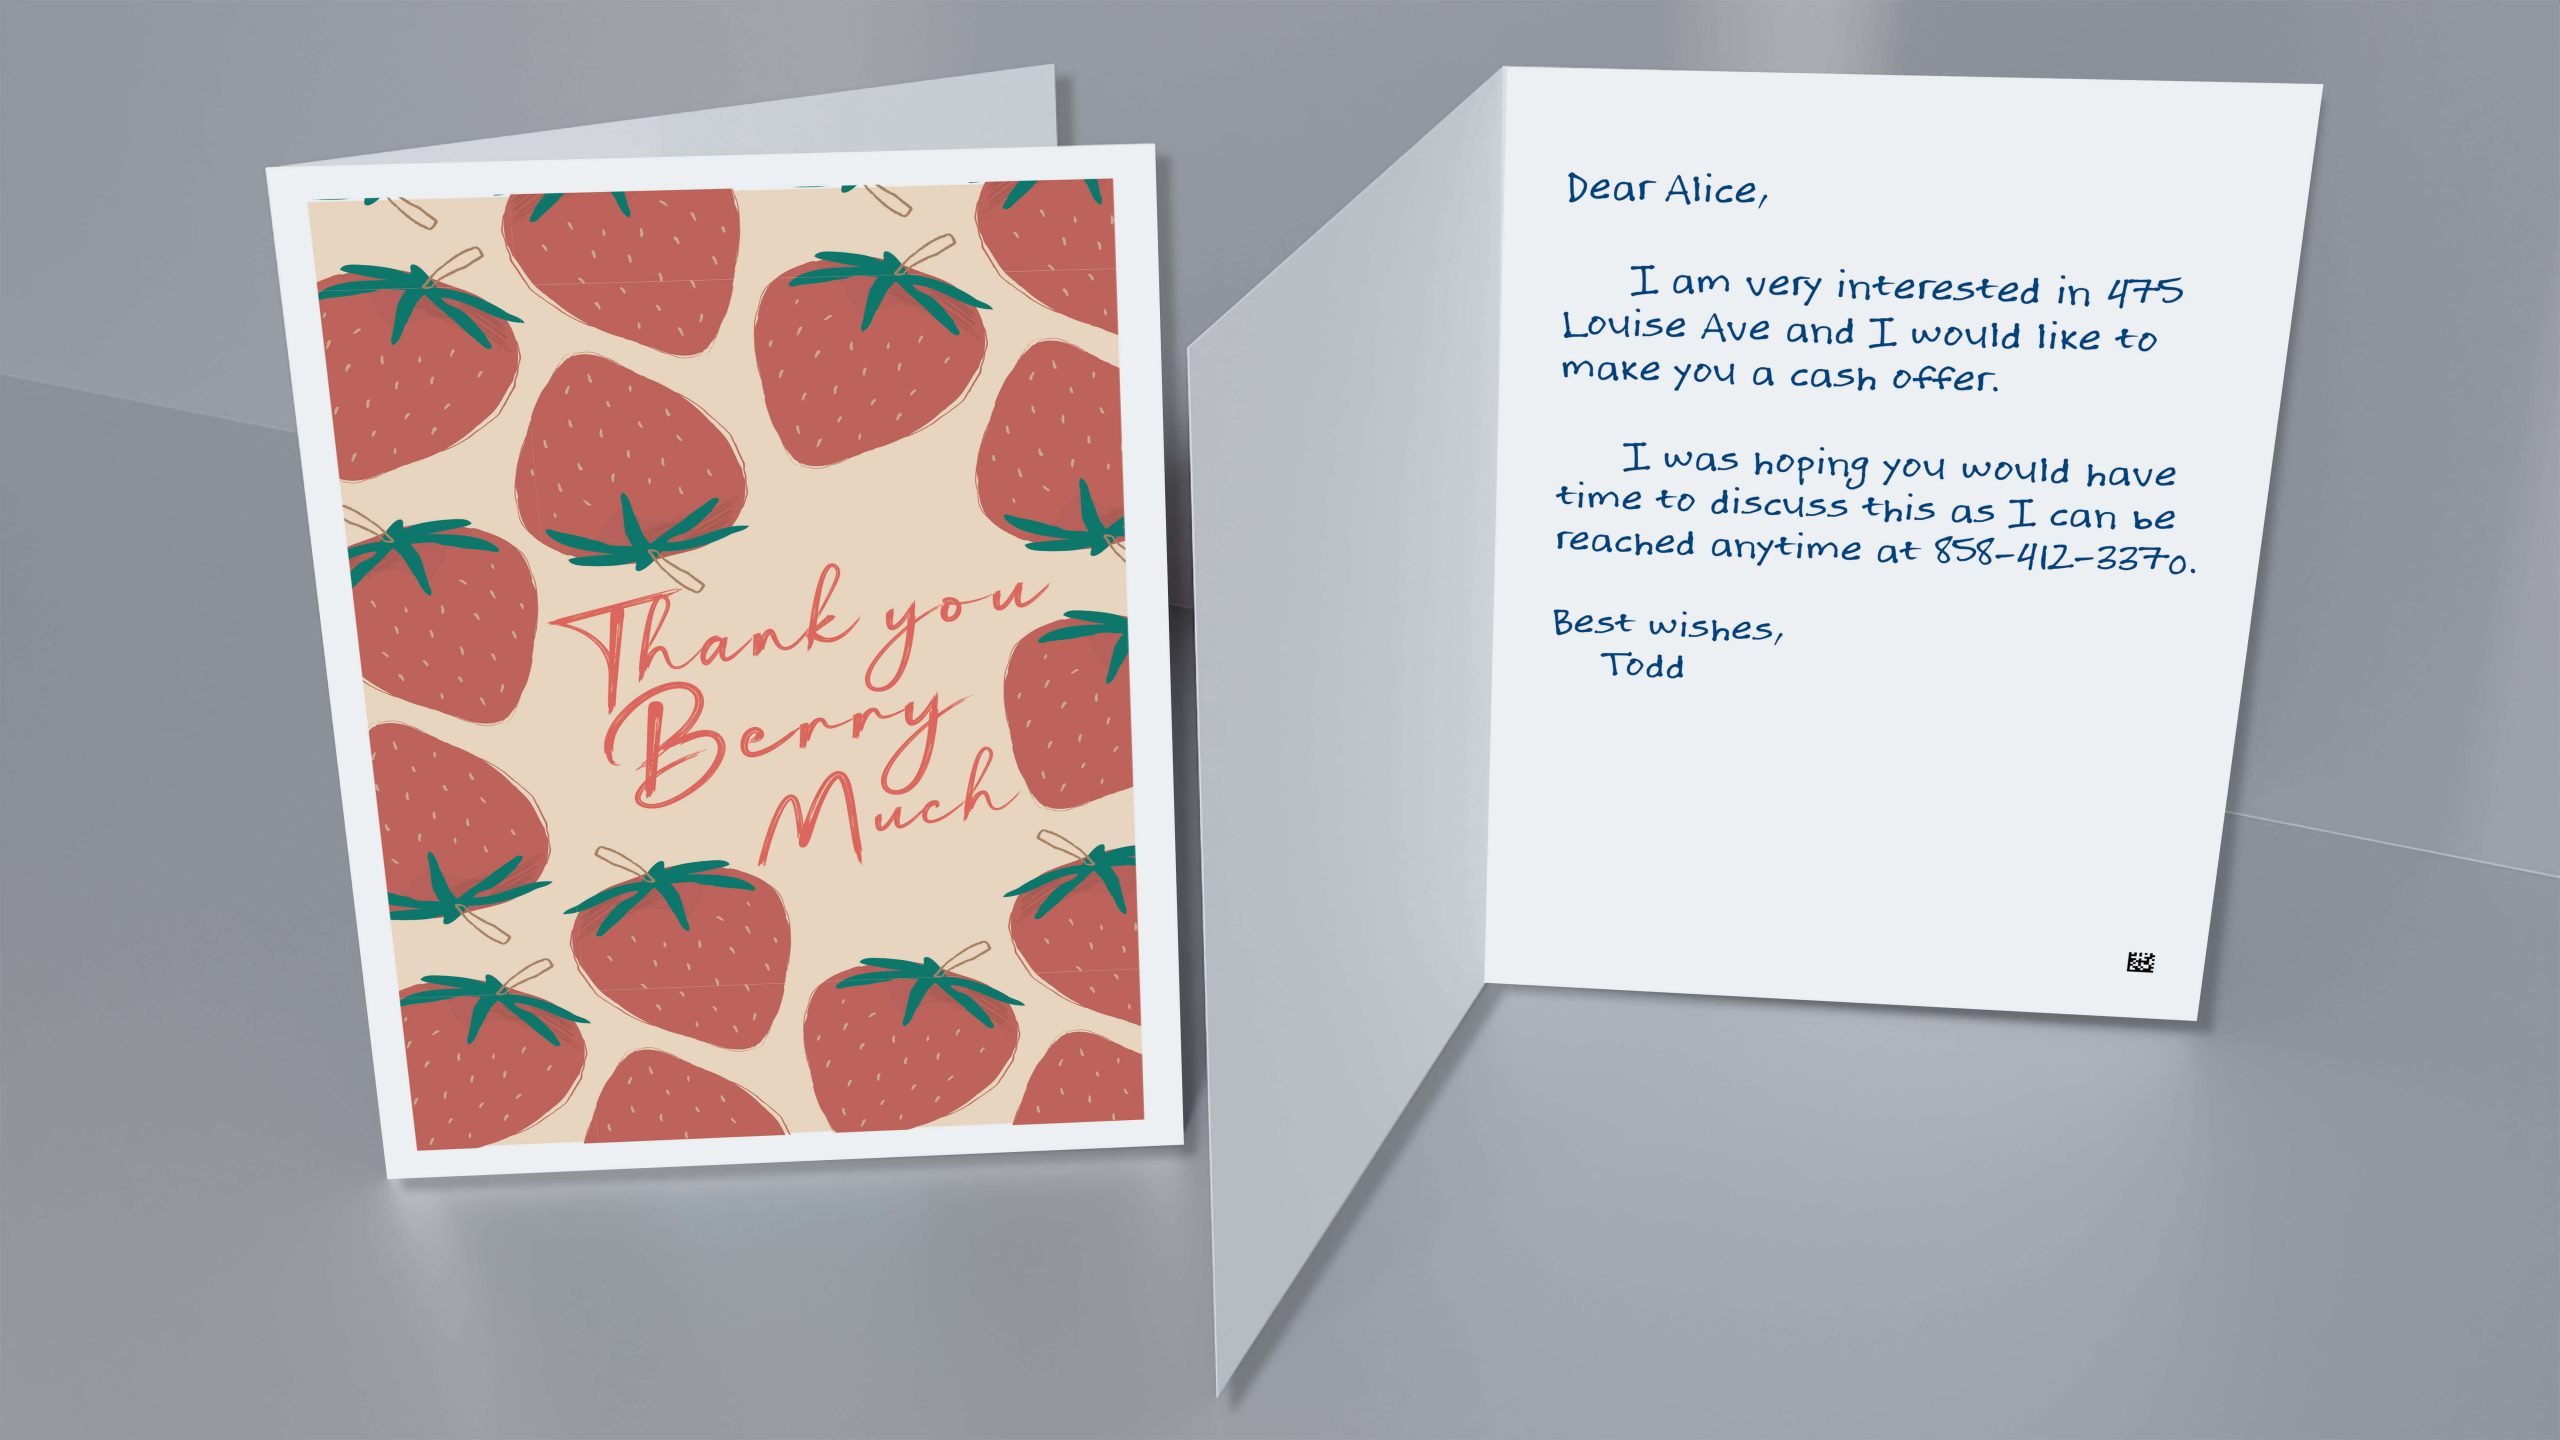 Thank you
Berry
Much
Dear Alice,
I am very interested in 475
Louise Ave and I would like to
make you a cash offer.
I was hoping you would have
time to discuss this as I can be
reached anytime at 858-412-3370.
Best wishes,
Todd